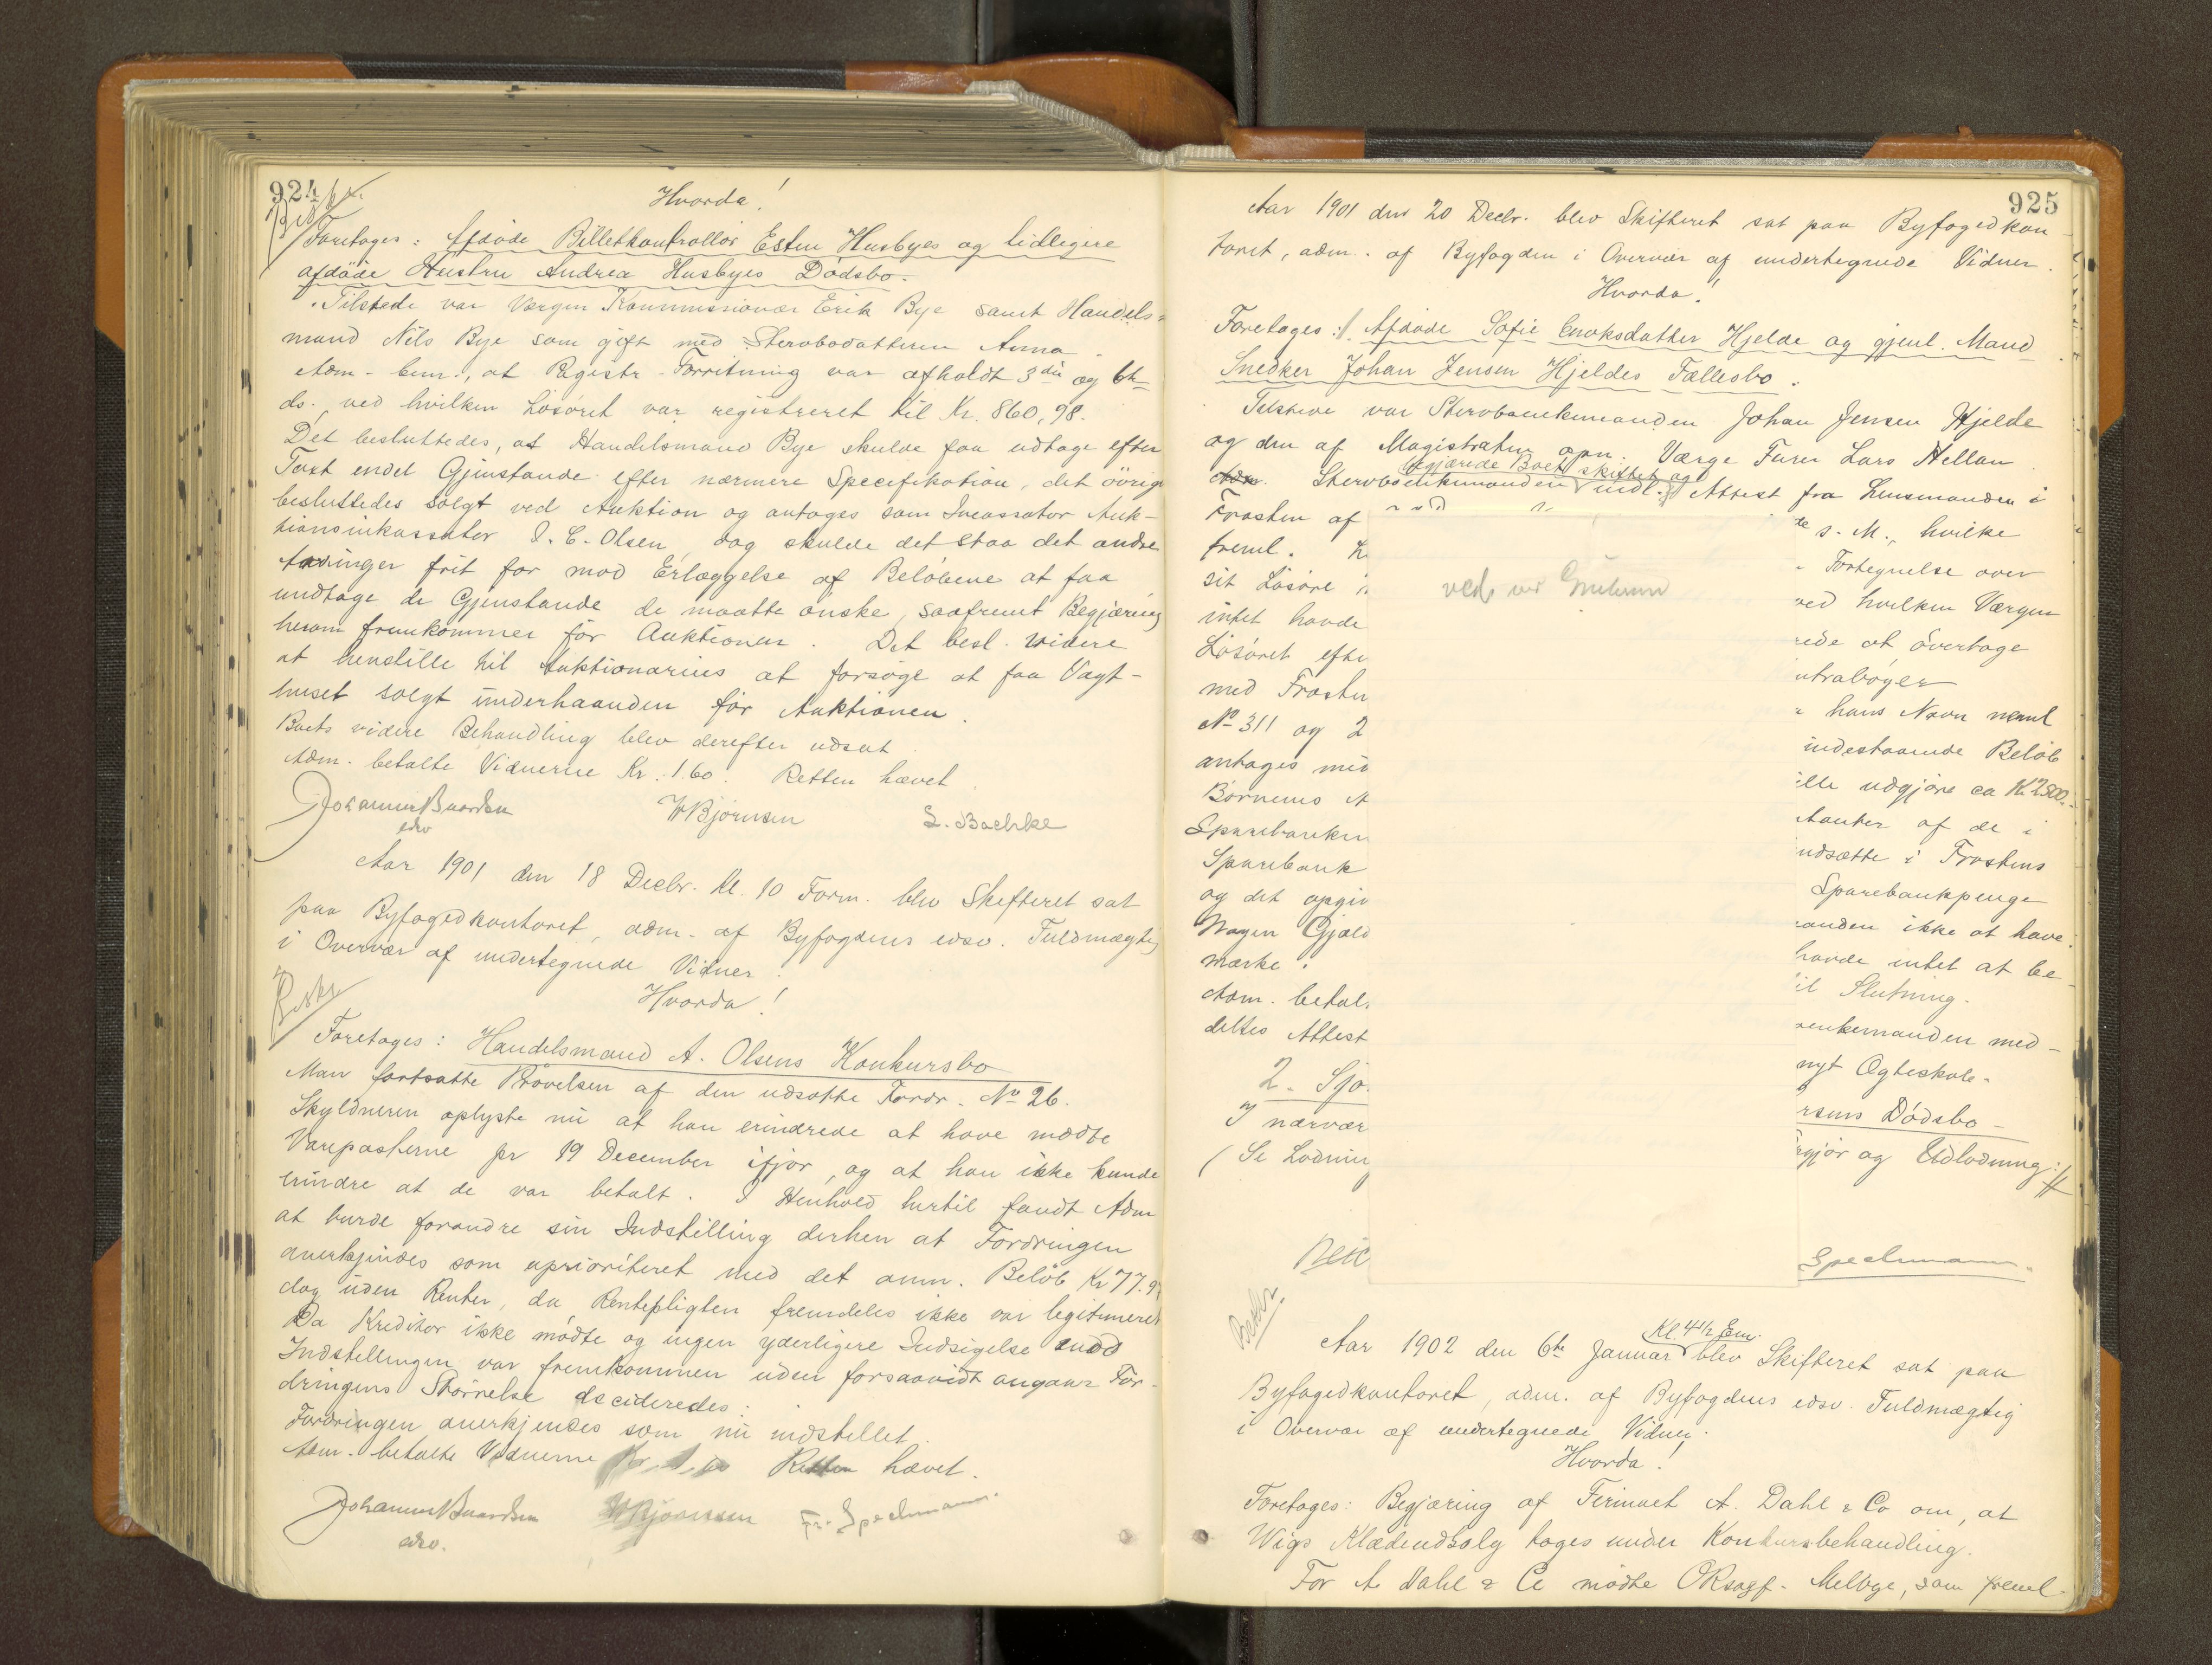 924
Beskr.
Hvorda!
Foretages: Afdøde Billetkontrollør Esten Husbyes og tidligere
afdøde Hustru Andrea Husbyes Dødsbo.
Tilstede var Værgen Kommissionær Erik Bye samt Handels-
mand Nils Bye som gift med Stervbodatteren Anna.
Adm. bem., at Registr. Forretning var afholdt 3die og 6te
ds. ved hvilken Løsøret var registreret til Kr. 860,98.
Det besluttedes, at Handelsmand Bye skulde faa udtage efter
Taxt endel Gjenstande efter nærmere Specifikation, det øvrige
besluttedes solgt ved Auktion og antages som Incassator Auk-
tionsinkassator I. C. Olsen, dog skulde det staa det andre
Arvinger frit for mod Erlæggelse af Beløbene at faa
undtage de Gjenstande de maatte ønske, saafremt Begjæring
herom fremkommer før Auktionen. Det besl. videre
at henstille til Auktionarius at forsøge at faa Vagt-
huset solgt underhaanden før Auktionen.
Boets videre Behandling blev derefter udsat
Adm. betalte Vidnerne Kr. 1.60. Retten hævet
Johannes
edsv
W Bjørnsen
L. Bachke
Aar 1901 den 18 Decbr. Kl. 10 Form. blev Skifteret sat
paa Byfogedkontoret, adm. af Byfogdens edsv. Fuldmægtig
i Overvær af undertegnede Vidner.
Beskr
Hvorda!
Foretages: Handelsmand A. Olsens Konkursbo
Man fortsatte Prøvelsen af den udsatte Fordr. No 26.
Skyldneren oplyste nu at han erindrede at have modt
Vareposterne pr 19 December ifjor, og at han ikke kunde
erindre at de var betalt. I Henhold hertil fandt Adm
at burde forandre sin Indstilling derhen at Fordringen
anerkjendes som uprioriteret med det anm. Beløb Kr 77.9
dog uden Renter, da Rentepligten fremdeles ikke var legitimeret
Da Kreditor ikke mødte og ingen yderligere Indsigelse mod
Indstillingen var fremkommen uden forsaavidt angaar For-
dringens Størrelse decideredes:
Fordringen anerkjendes som nu indstillet.
Adm. betalte Vidnerne Kr. Retten hævet.
Johannes
edsv.
W Bjørnsen
Fr. Speelmann.
925
Aar 1901 den 20 Decbr. blev Skifteret sat paa Byfogedkon-
toret, adm. af Byfogden i Overvær af undertegnede Vidner.
Hvorda!
Foretages: 1. Afdøde Sofie Enoksdatter Hjelde og gjenl. Mand
Snedker Johan Jensen Hjeldes Fællesbo.
Tilstede var Stervboenkemanden Johan Jensen Hjelde
og den af Magistraten opn. Værge Furer Lars Hellan
begjærede Boet skiftet og
Adm. Stervboenkemanden indl. Attest fra Lensmanden i
Frosten af
te s. M., hvilke
freml.
Fortegnelse over
sit Løsøre
ved hvilken Værgen
intet havde
rede at overtage
Løsøret efte
ntrabøger
med Frosten
hans Navn nemt
No 311 og 2
indestaaende Beløb
antages mid
ille udgjøre ca Kr 2500.
Børnenes A
Renter af de i
Sparebanken
udsætte i Frostens
Sparebank
Sparebankpenge
og det opgiv
anden ikke at have
Nogen Gjæld
havde intet at be-
mærke.
il Slutning.
Adm. betal.
oenkemanden med-
deltes Attest
nyt Ægteskab.
2. Sjo
rsens Dødsbo
I nærvær
rgjør og Udlodning:
(Se Lodning
Speelmann.
Beskr.
Kl. 4 1/2 Em.
Aar 1902 den 6te Januar blev Skifteret sat paa
Byfogedkontoret, adm. af Byfogdens edsv. Fuldmægtig
i Overvær af undertegnede Vidner.
Hvorda!
Foretages: Begjæring af Firmaet A. Dahl & Co om, at
Wigs Klædeudsalg tages under Konkursbehandling.
For A Dahl & Co mødte ORsagf. Melbye, som freml.